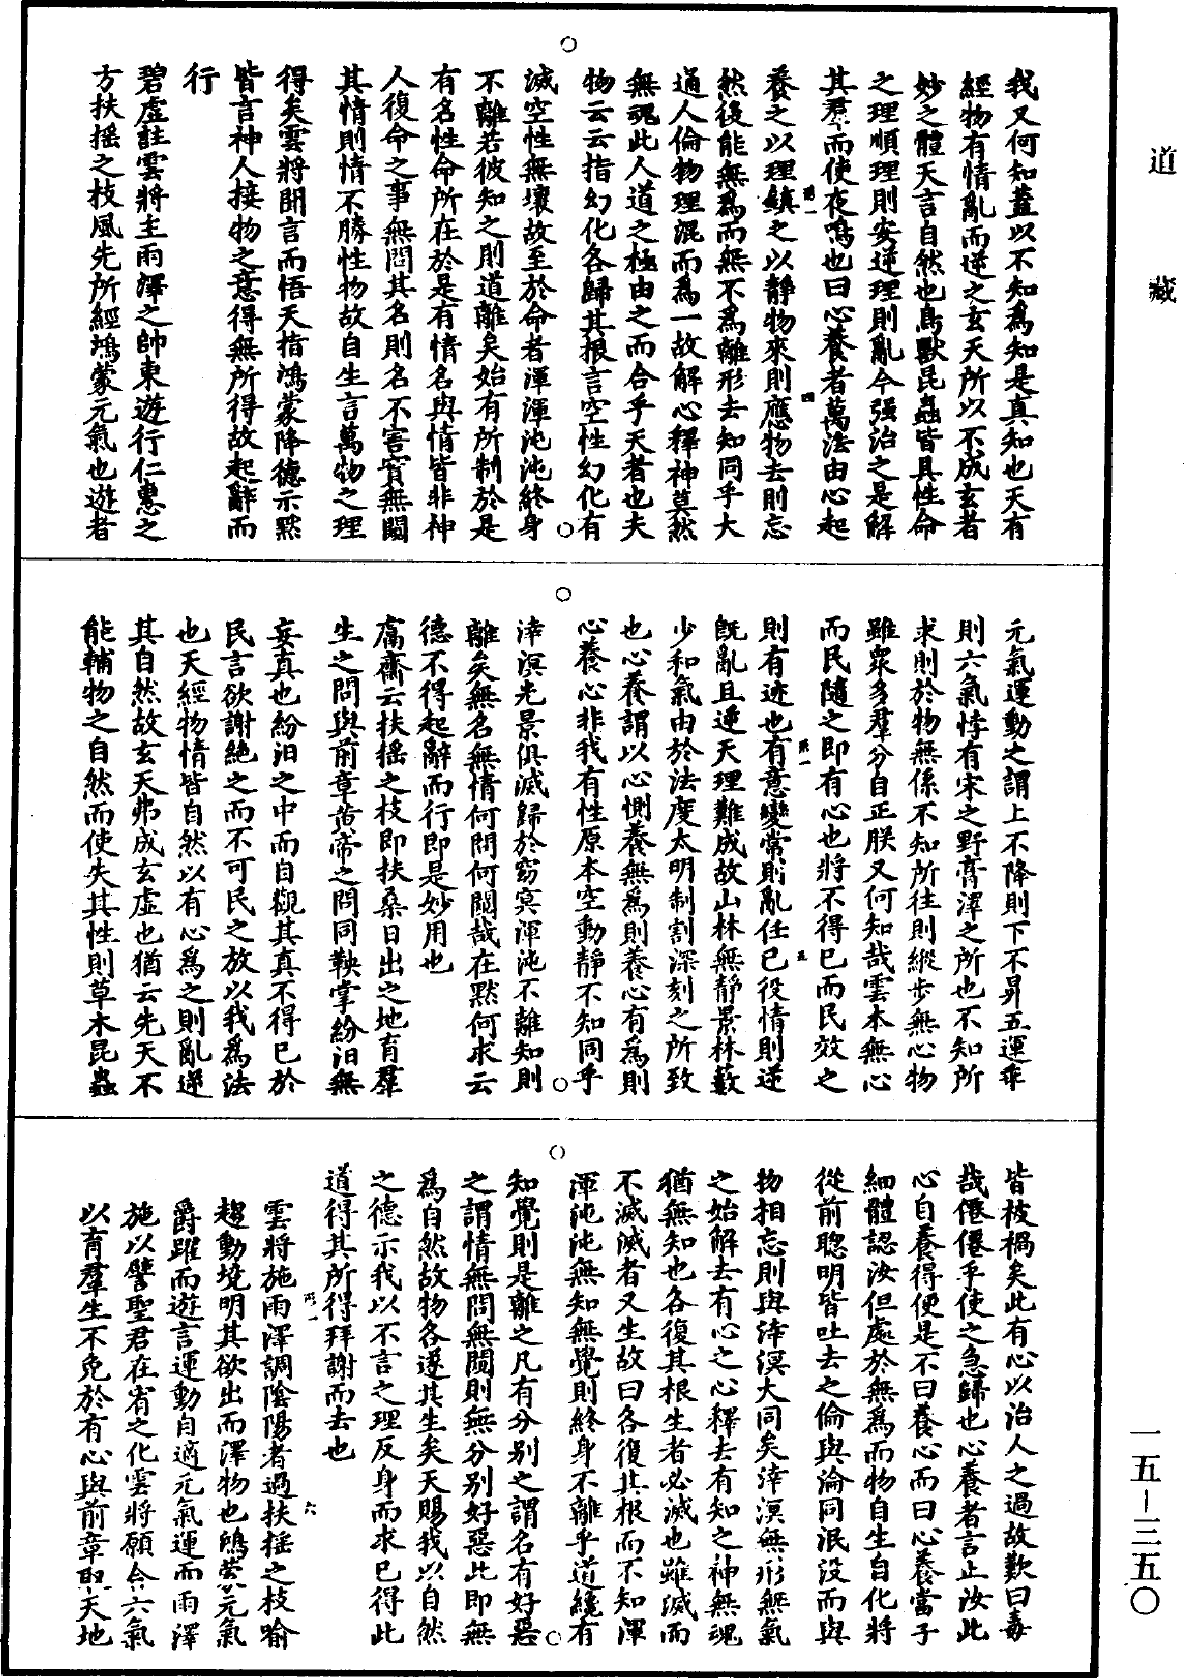 道藏
我又何知蓋以不知爲知是真知也天有
經物有情亂而逆之玄天所以不成玄者
妙之體天言自然也鳥獸昆蟲皆具性命
之理順理則安逆理則亂今强治之是解
其羣而使夜鳴也曰心養者萬法由心起
養之以理鎮之以靜物來則應物去則忘
然後能無爲而無不爲離形去知同乎大
通人倫物理混而爲一故解心釋神莫然
無魂此人道之極由之而合乎天者也夫
物云云指幻化各歸其根言空性幻化有
滅空性無壞故至於命者渾渾沌沌終身
不離若彼知之則道離矣始有所制於是
有名性命所在於是有情名與情皆非神
人復命之事無問其名則名不害實無闚
其情則情不勝性物故自生言萬物之理
得矣雲將聞言而悟天指鴻蒙降德示默
皆言神人接物之意得無所得故起辭而
行
碧虛註雲將主雨澤之帥東遊行仁惠之
方扶搖之枝風先所經鴻蒙元氣也遊者
元氣運動之謂上不降則下不昇五運乖
則六氣悖有宋之野膏澤之所也不知所
求則於物無係不知所往則縱步無心物
雖衆多羣分自正朕又何知哉雲本無心
而民隨之即有心也將不得已而民效之
則有迹也有意變常則亂任已役情則逆
既亂且逆天理難成故山林無靜景林藪
少和氣由於法度太明制割深刻之所致
也心養謂以心惻養無爲則養心有爲則
心養心非我有性原本空動靜不知同乎
涬溟光景俱滅歸於窈冥渾沌不離知則
離矣無名無情何問何闚哉在默何求云
德不得起辭而行即是妙用也
鬳齋云扶搖之枝即扶桑日出之地育羣
生之問與前章黄帝之問同鞅掌紛汨無
妄真也紛汨之中而自觀其真不得已於
民言欲謝絶之而不可民之放以我爲法
也天經物情皆自然以有心爲之則亂逆
其自然故玄天弗成玄虛也猶云先天不
能輔物之自然而使失其性則草木昆蟲
皆被禍矣此有心以治人之過故歎曰毒
哉僊僊乎使之急歸也心養者言止汝此
心自養得便是不曰養心而曰心養當子
細體認汝但處於無爲而物自生自化將
從前聦明皆吐去之倫與淪同泯没而與
物相忘則與涬溟大同矣涬溟無形無氣
之始解去有心之心釋去有知之神無魂
猶無知也各復其根生者必滅也雖滅而
不滅滅者又生故曰各復其根而不知渾
渾沌沌無知無覺則終身不離乎道纔有
知覺則是離之凡有分别之謂名有好惡
之謂情無問無闚則無分别好惡此即無
爲自然故物各遂其生矣天賜我以自然
之德示我以不言之理反身而求已得此
道得其所得拜謝而去也
雲將施雨澤調陰陽者過扶搖之枝喻
趨動境明其欲出而澤物也鴻蒙元氣
爵躍而遊言運動自適元氣運而雨澤
施以譬聖君在宥之化雲將願合六氣
以育羣生不免於有心與前章取天地
一五－三五〇